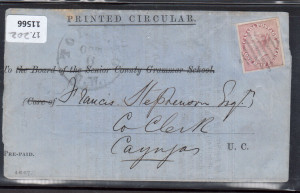 17.202
11566
PRINTED CIRCULAR.
To the Board of the Senior County Grammar School.
(Care of) Francis Stephenson Esqr
Co Clerk
Cayuga
PRE-PAID.
U. C.